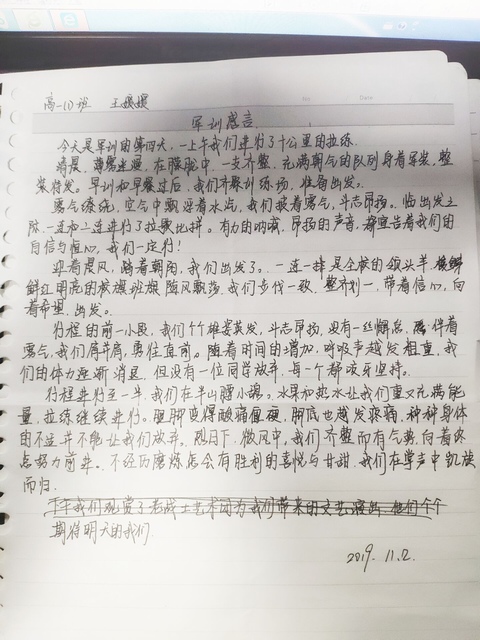 高一(1)班 王媛媛
No Date
军训感言
今天是军训的第四天,一上午我们进行了十公里的拉练.
清晨,薄雾迷漫,在朦胧中,一支齐整,充满朝气的队列身着军装,整
装待发。早训和早餐过后,我们齐聚训练场,准备出发。
雾气缭绕,空气中飘浮着水汽,我们披着雾气,斗志昂扬。临出发之
际,一连和二连进行了拉歌比拼。有力的呐喊,昂扬的声音,都宣告着我们的
自信与恒心,我们一定行!
迎着晨风,踏着朝阳,我们出发了。一连一排是全校的领头羊,
鲜红明亮的校旗班旗随风飘荡,我们步伐一致,整齐划一,带着信心,向
着希望,出发。
行程的前一小段,我们个个雄姿英发,斗志昂扬,没有一丝懈怠,伴着
雾气,我们肩并肩,勇往直前。随着时间的增加,呼吸声越发粗重,我
们的体力逐渐消退,但没有一位同学放弃,每一个都咬牙坚持。
行程进行至一半,我们在半山腰小憩。水果和热水让我们重又充满能
量,拉练继续进行。腿脚变得酸痛僵硬,脚底也越发疼痛,种种身体
的不适并不能让我们放弃。烈日下,微风中,我们齐整而有气势,向着终
点努力前进。不经历磨炼怎会有胜利的喜悦与甘甜,我们在掌声中凯旋
而归.
下午我们观赏了老战士艺术团为我们带来的文艺演出,他们个个
期待明天的我们.
2019.11.2.